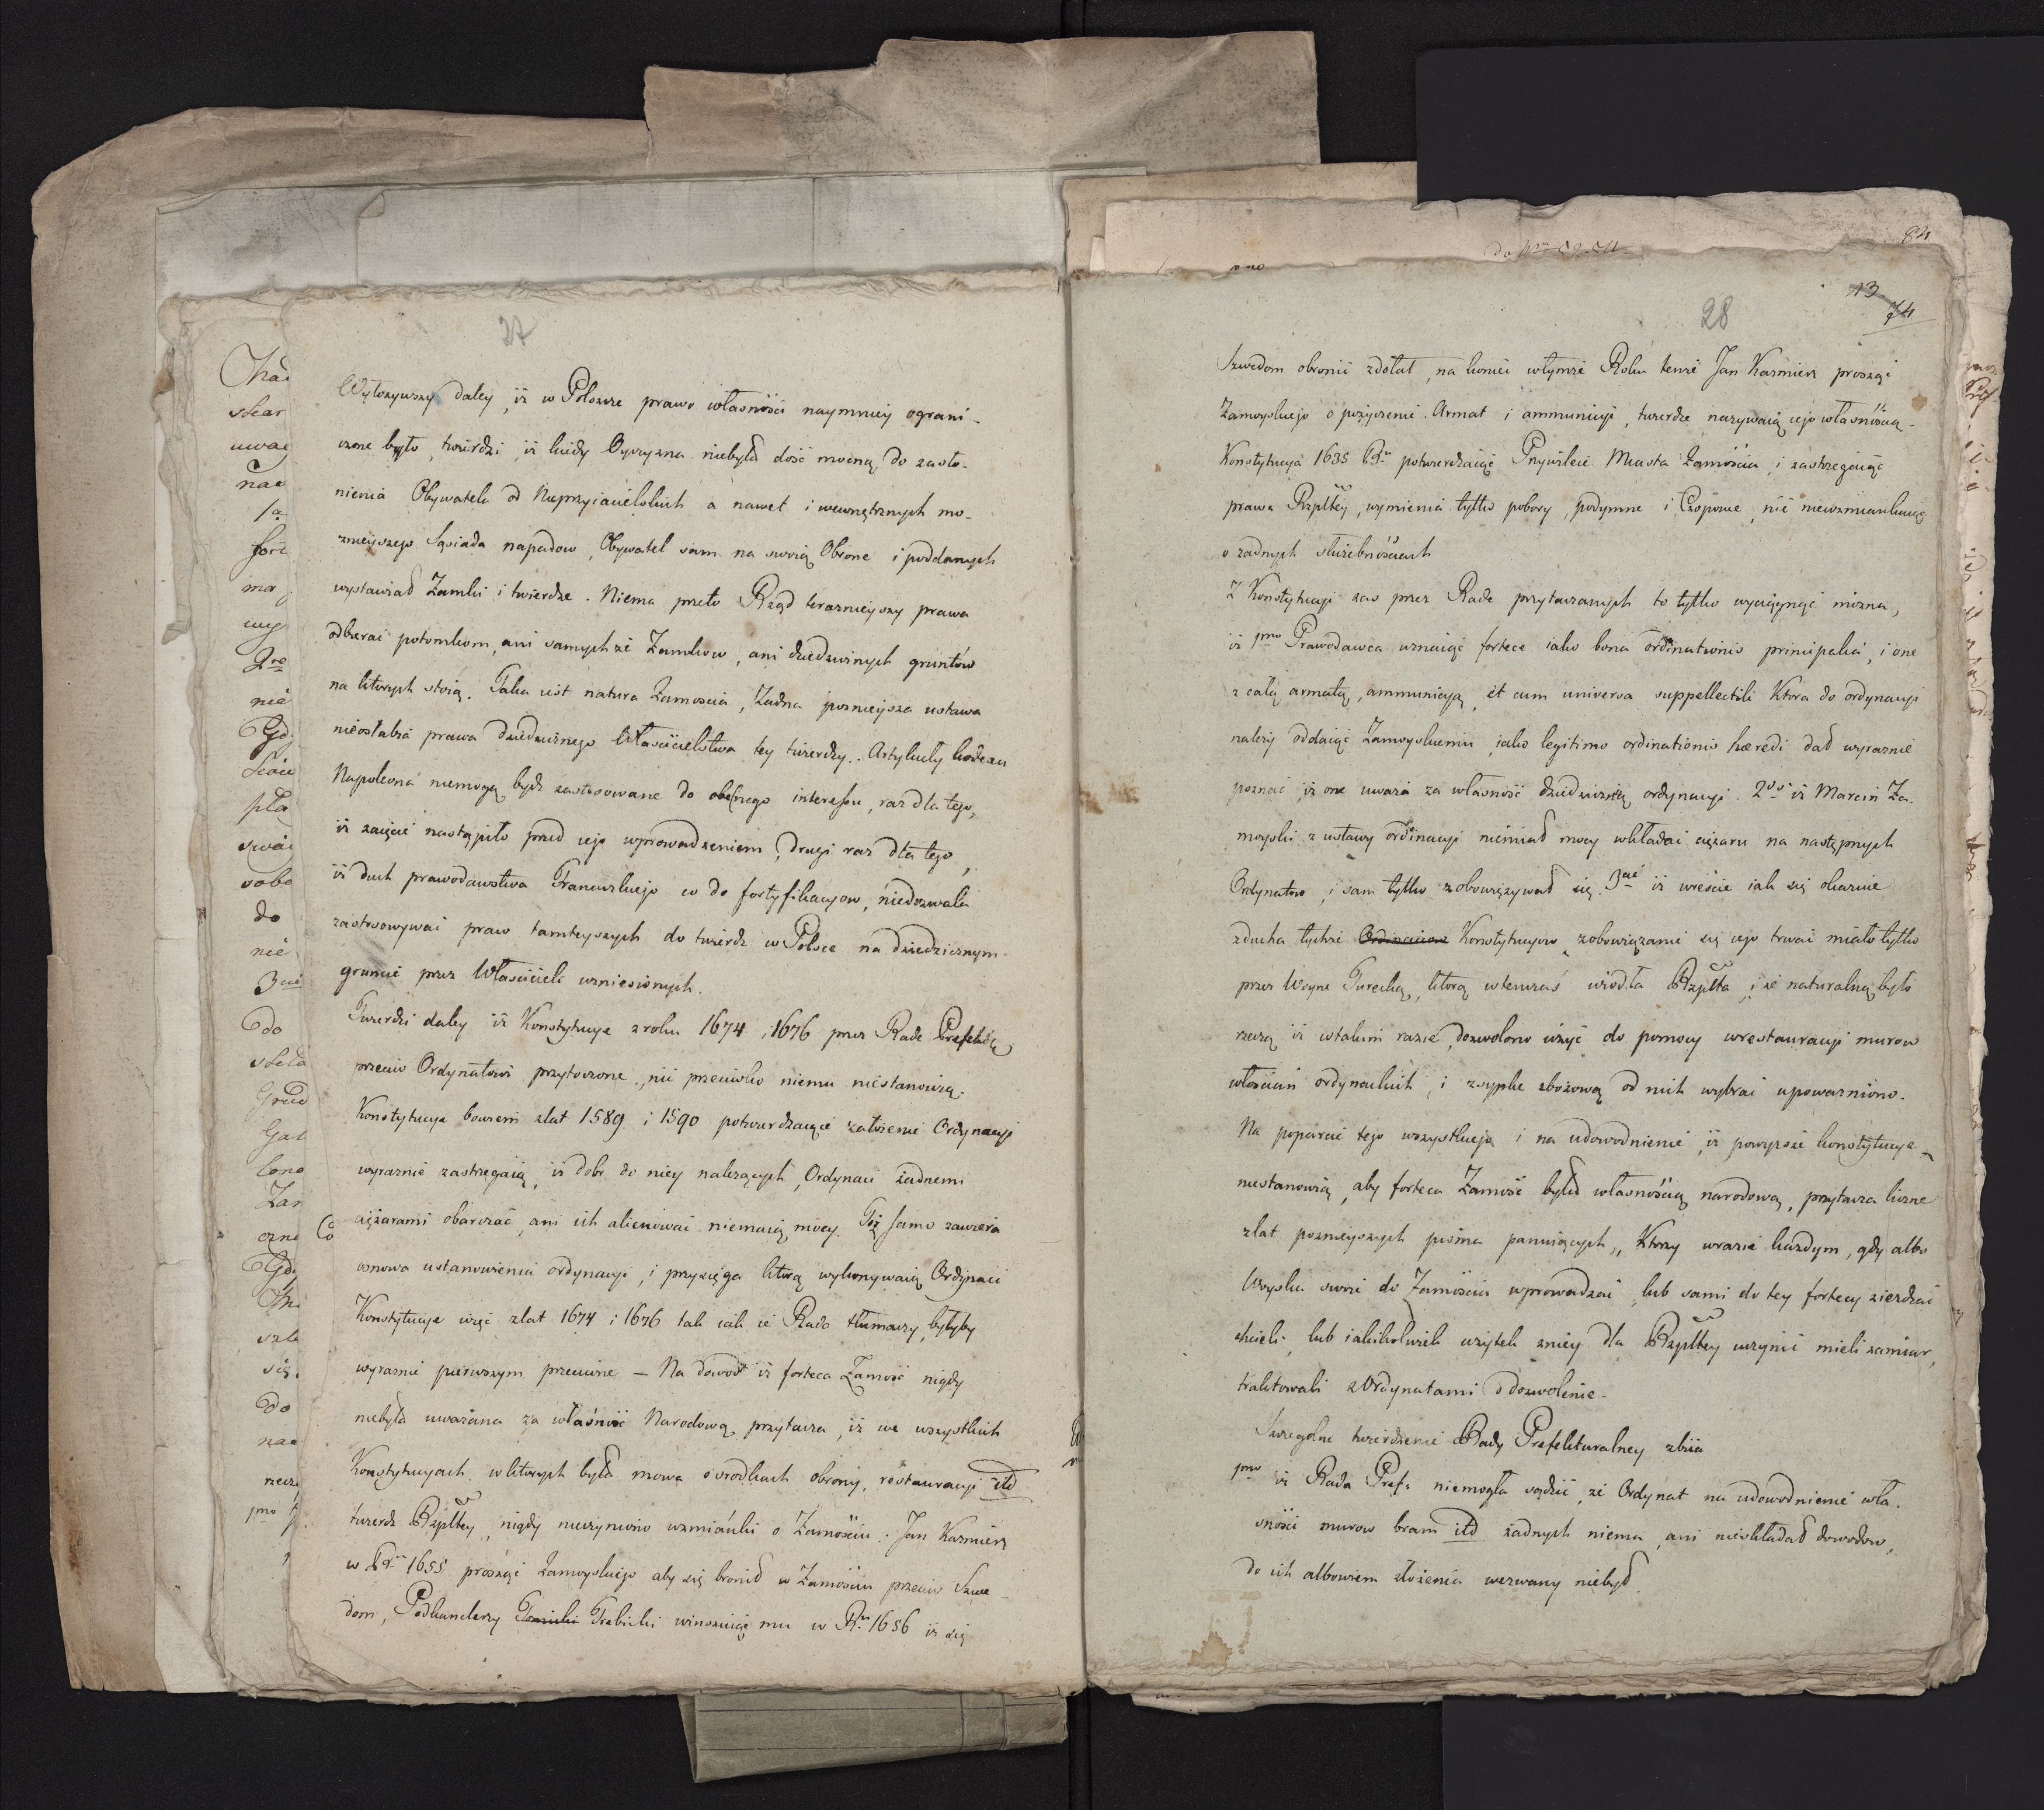 27
Wyłożywszy daley, iż w Polszcze prawo własności naymniey ograni-
czone było, twierdzi, iż kiedy Oyczyzna niebyła dość mocną do zasło-
nienia Obywatela od Nieprzyiacielskich a nawet i wewnętrznych mo-
znieyszego Sąsiada napadow, Obywatel sam na swoią Obronę i poddanych
wystawiał Zamki i twierdze. Niema przeto Rząd terazniejszy prawa
odbierać potomkom, ani samychże Zamkow, ani dziedzicznych gruntów
na których stoią. Taka iest natura Zamościa, Żadna poznieysza ustawa
nieosłabia prawa dziedzicznego Właścicielstwa tey twierdzy. Artykuły kodexu
Napoleona niemogą bydź zastosowane do obecnego interessu, raz dla tego,
iż zaięcie nastąpiło przed iego wprowadzeniem, drugi raz dla tego,
iż duch prawodawstwa Francuzkiego co do fortyfikacyow, niedozwala
zastosowywać praw tamteyszych do twierdz w Polsce na dziedzicznym
gruncie przez Właściciela wzniesionych.
Twierdzi daley iż Konstytucye z roku 1674 i 1676 przez Radę Prefektu̅
przeciw Ordynatowi przytoczone, nic przeciwko niemu niestanowią.
Konstytucye bowiem z lat 1589 i 1590 potwierdzaiące założenie Ordynacyi
wyraznie zastrzegaią, iż dobr do niey należących, Ordynaci żadnemi
ciężarami obarczać, ani ich alienować niemaią mocy. Toż samo zawiera
osnowa ustanowienia ordynacyi, i przysięga którą wykonywaią Ordynaci
Konstytucye więc z lat 1674 i 1676 tak iak ie Rada tłumaczy, byłyby
wyraznie pierwszym przeciwne — Na dowod iż forteca Zamość nigdy
niebyła uważana za własność Narodową przytacza, iż we wszystkich
Konstytucyach, w których była mowa o srodkach obrony, restauracyi itd
twierdz Rzpltey, nigdy nieczyniono wzmianki o Zamościu. Jan Kazmierz
w Rku 1655 prosząc Zamoyskiego aby się bronił w Zamościu przeciw Szwe-
dom, Podkanclerzy Trzebicki winszuiąc mu w Rku 1656 iż się
28
13
74
Szwedom obronić zdołał, na koniec wtymże Roku tenże Jan Kazmierz prosząc
Zamoyskiego o pożyczenie Armat i ammunicyi, twierdzę nazywaią iego własnością.
Konstytucya 1635 Rku potwierdzaiąc Przywileie Miasta Zamościa, i zastrzegaiąc
prawa Rzpltey, wymienia tylko pobory, podymne i Czopowe, nic niewzmiankuiąc
o żadnych służebnościach
Z Konstytucyi zas przez Radę przytaczanych to tylko wyciągnąć można,
iż 1mo Prawodawca uznaiąc fortecę iako bona ordinationis principalia, i one
z całą armatą, ammunicyą, et cum universa suppellectili Ktora do ordynacyi
należy oddaiąc Zamoyskiemu iako legitimo ordinationis hæredi dał wyraznie
poznać, iż one uważa za własność dziedziczną ordynacyi. 2do iż Marcin Za-
moyski z ustawy ordinacyi niemiał mocy wkładać ciężaru na następnych
Ordynatow, i sam tylko zobowiązywał się. 3cie iż wreście iak się okazuie
z ducha tychże Ordinacion Konstytucyow, zobowiązanie się iego trwać miało tylko
przez Woynę Turecką, którą wtenczas wiodła Rzplta, i że naturalną było
rzeczą iż w takim razie, dozwolono użyć do pomocy w restauracyi murow
włościan ordynackich, i zsypkę zbożową od nich wybrać upoważniono.
Na poparcie tego wszystkiego i na udowodnienie, iż powyższe konstytucye
niestanowią, aby forteca Zamość była własnością narodową, przytacza liczne
z lat poznieyszych pisma panuiących, Ktorzy w razie każdym, gdy albo
Woyska swoie do Zamościa wprowadzać, lub sami do tey fortecy ziezdzać
chcieli, lub iakikolwiek użytek z niey dla Rzpltey uczynić mieli zamiar,
traktowali z Ordynatami o dozwolenie.
Szczegolne twierdzenie Rady Prefekturalney zbiia
1mo iż Rada Pref: niemogła sądzić, że Ordynat na udowodnienie wła-
sności murow bram itd żadnych niema, ani nieskładał dowodow,
do ich albowiem złożenia wezwany niebył.